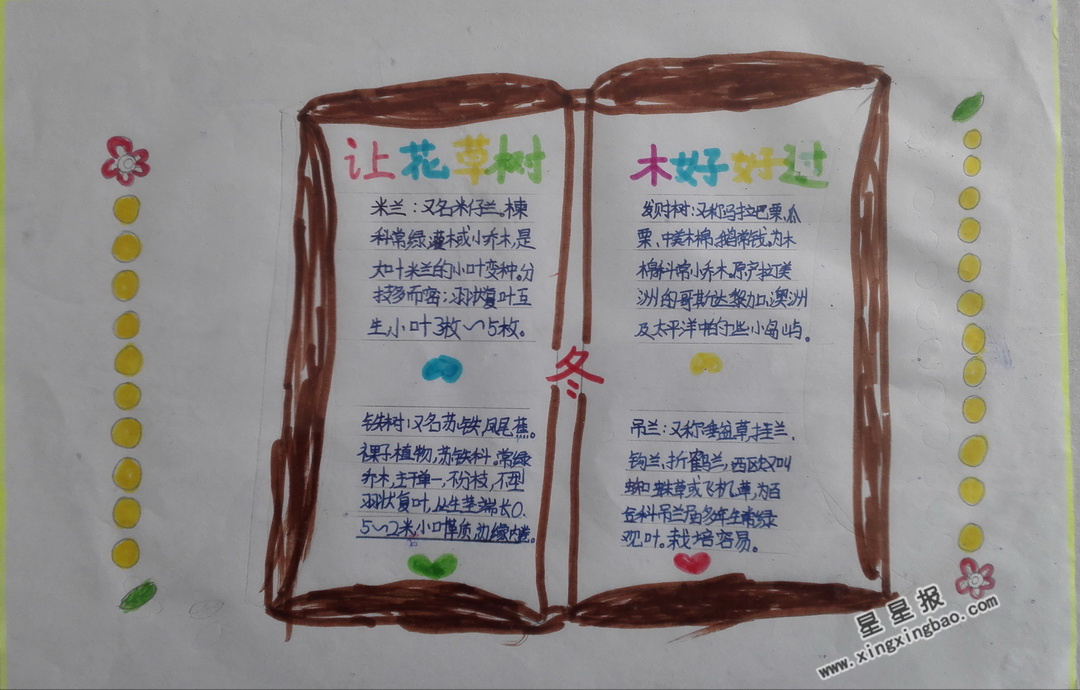 让花草树
米兰：又名米仔兰。楝
科常绿灌木或小乔木,是
大叶米兰的小叶变种。分
技多而密；羽状复叶互
生,小叶3枚～5枚。
铁树：又名苏铁,凤尾蕉。
裸子植物,苏铁科。常绿
乔木,主干单一,不分枝,大型
羽状复叶,丛生茎端长0.
5～2米小叶革质,边缘内卷。
冬
木好好过
发财树：又称玛拉巴栗、瓜
栗、中美木棉、鹅掌钱。为木
棉科常小乔木。原产拉丁美
洲的哥斯达黎加、澳洲
及太平洋中的一些小岛屿。
吊兰：又称垂盆草,挂兰,
钩兰,折鹤兰,西欧又叫
蜘蛛草或飞机草,为百
合科吊兰属多年生常绿
观叶。栽培容易。
星星报
www.xingxingbao.com